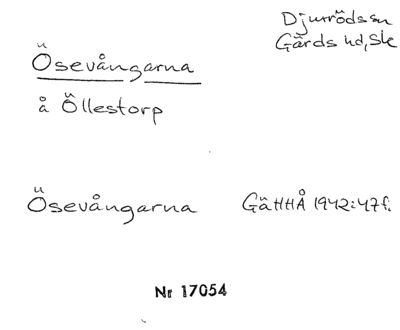 Djurrödssn
Gärds hd, Sk
Ösevångarna
å Öllestorp
Ösevångarna GäHHÅ 1942:47f.
Nr 17054